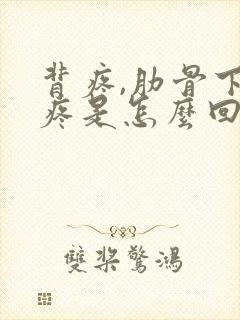 背疼,肋骨下
疼是怎麼回
雙槳驚鴻